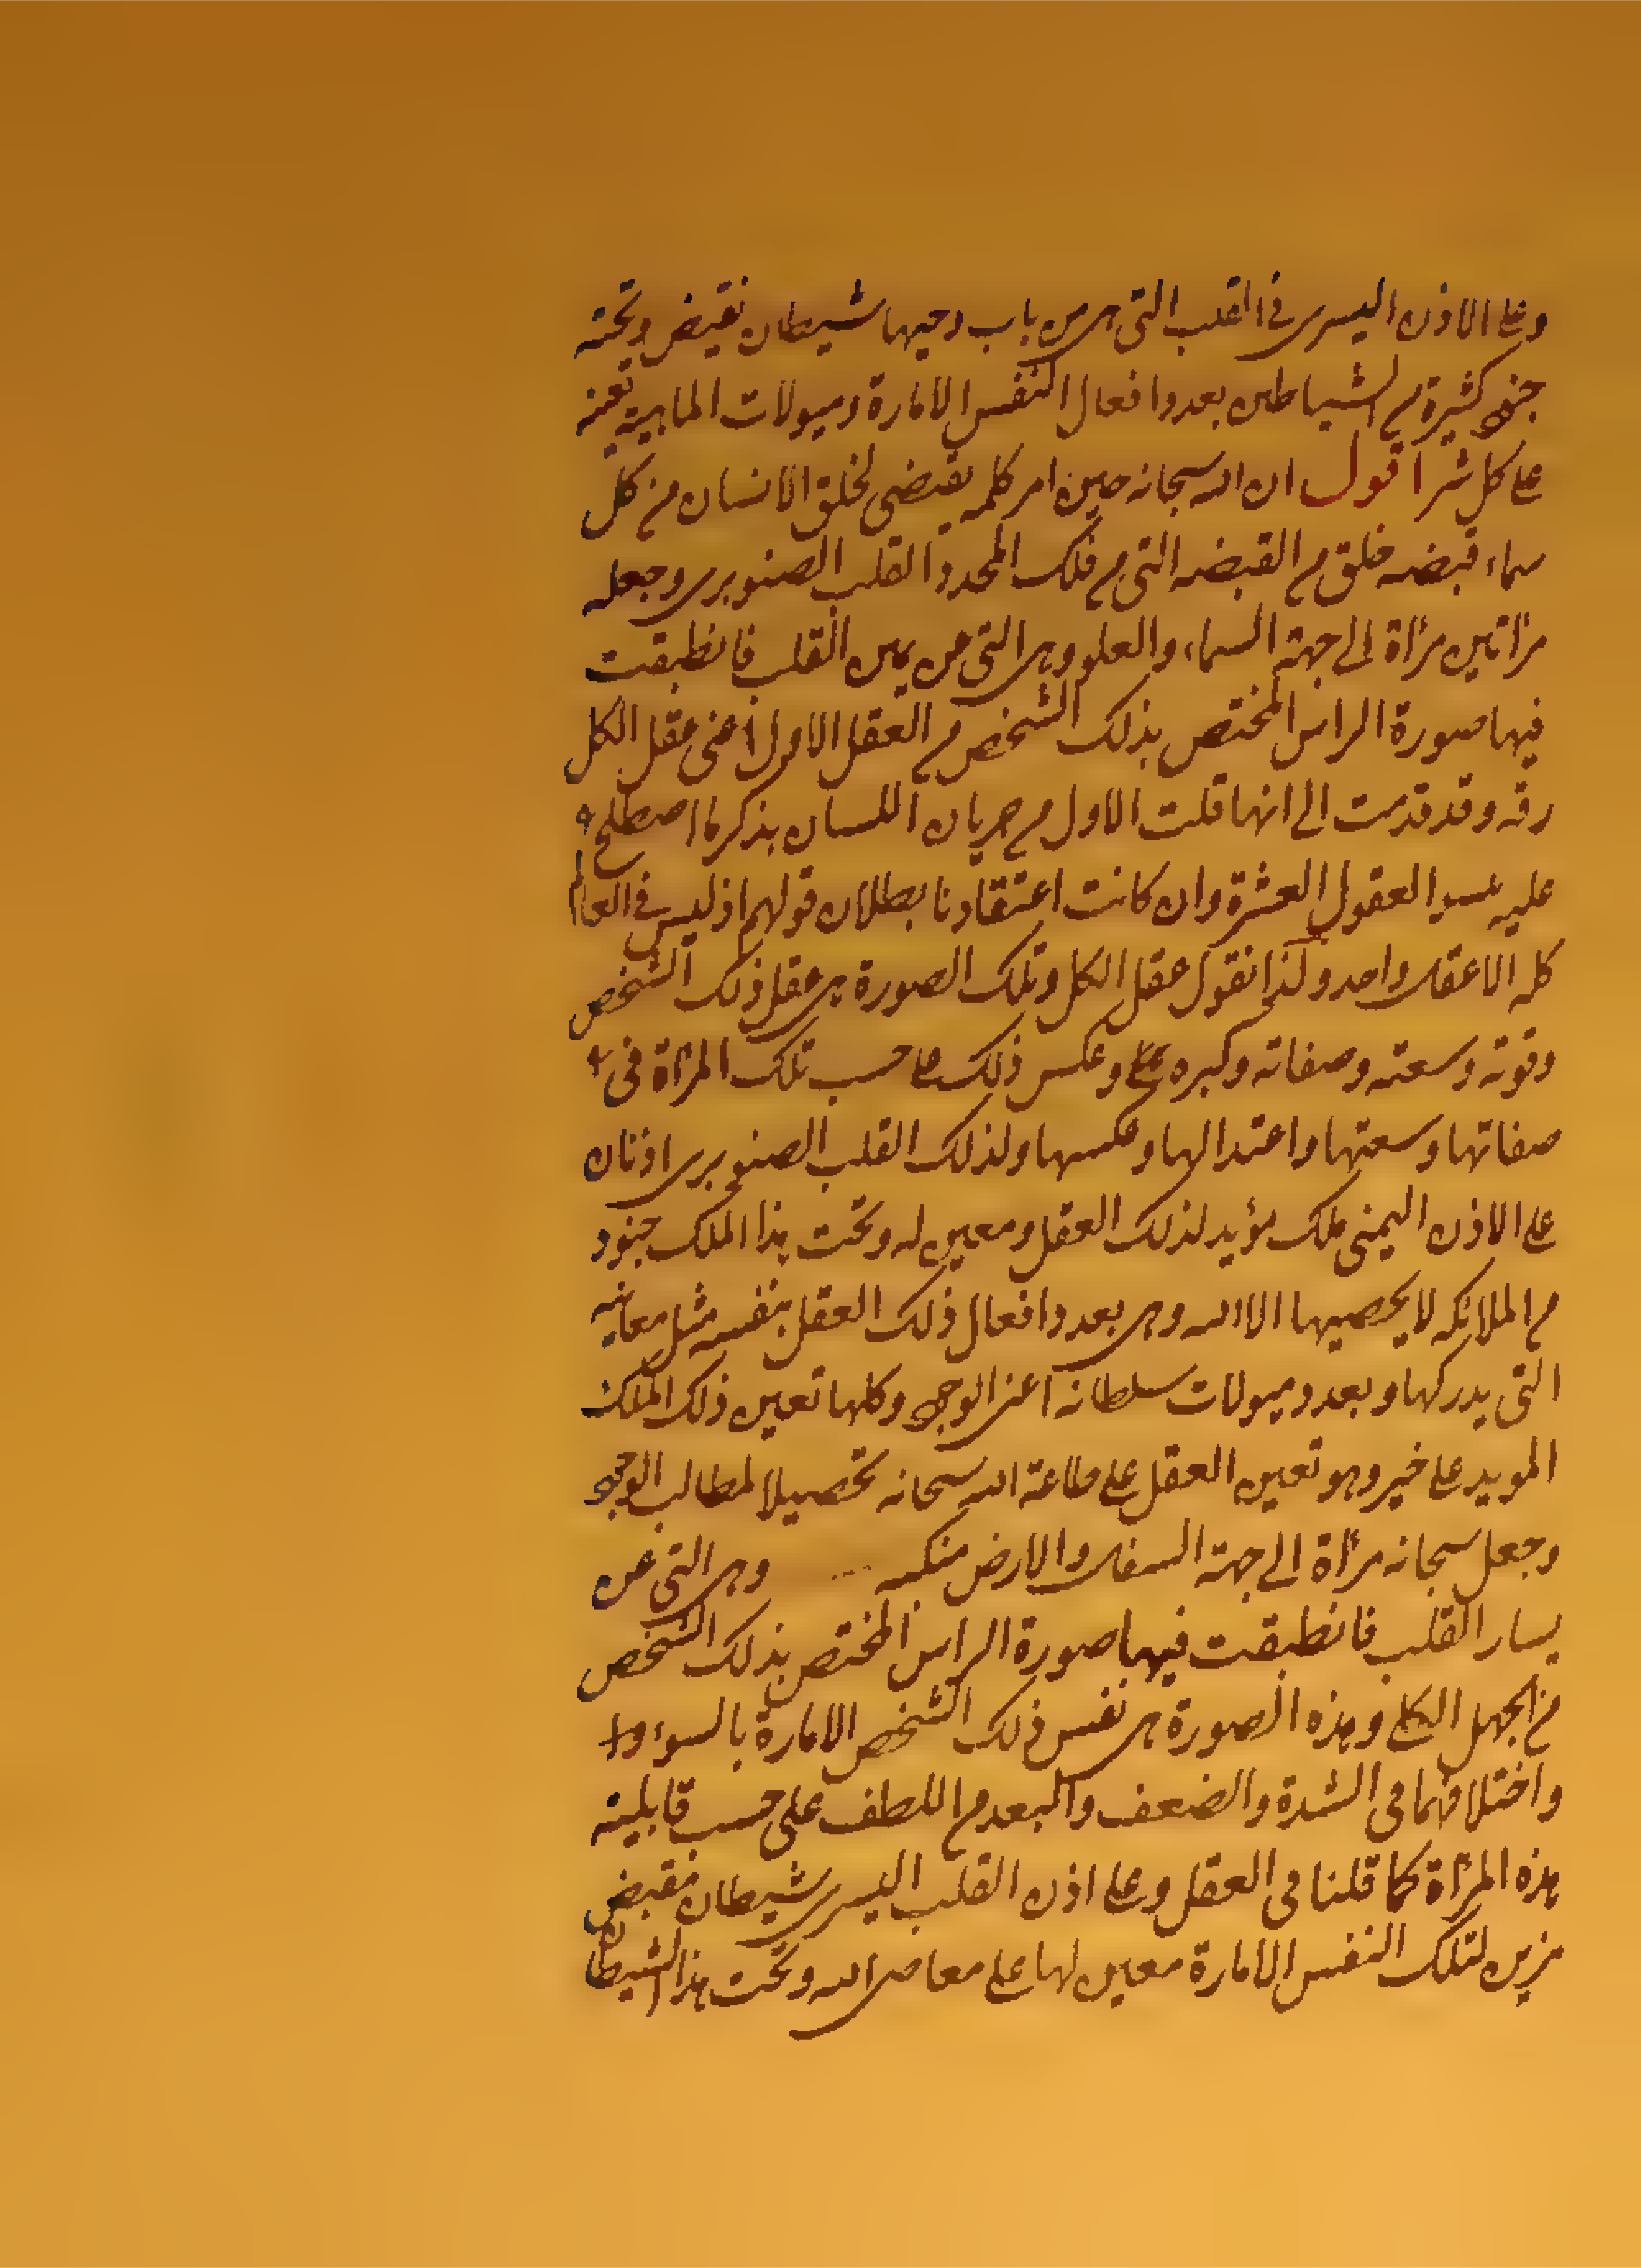 وعلى الاذن اليسرى في القلب التي هي من باب وحيها شيطان نقيض وتحته
جنود كثيرة من الشياطين بعدد افعال النفس الامارة وميولات الماهية تعينه
على كل شر اقول ان الله سبحانه حين امر كلمه يقبضى لخلق الانسان من كل
سماء قبضه خلق من القبضه التي من فلك المحدد القلب الصنوبرى وجعله
مرآتين مرآة الى جهة السماء والعلو وهى التى عن يمين القلب فانطبقت
فيها صورة الراس المختص بذلك الشخص من العقل الاول اعنى عقل الكل
رقه وقد قدمت الى انها قلت الاول من جريان اللسان بذكر ما اصطلح
عليه العقول العشرة وان كانت اعتقادنا بطلان قولهم اذ ليس في العالم
كله الا عقل واحد ولذا نقول عقل الكل وتلك الصورة هى عقل ذلك الشخص
وقوته وسعته وصفاته وكبره وعكس ذلك على حسب تلك المرآة فى
صفاتها وسعتها واعتدالها وعكسها ولذلك القلب الصنوبرى اذنان
على الاذن اليمنى ملك مؤيد لذلك العقل ومعين له وتحت هذا الملك جنود
من الملائكه لا يحصيها الا الله وهى بعدد افعال ذلك العقل بنفسه مثل معانيه
التى يدركها وبعدد ميولات سلطانه اعنى الوجود وكلها تعين ذلك الملك
المويد على خير وهو تعين العقل على طاعة الله سبحانه تحصيلا لمطالب الوجود
وجعل سبحانه مرآة الى جهة السفل والارض منكسه ... وهى التى عن
يسار القلب فانطبقت فيها صورة الراس المختص بذلك الشخص
من الجهل الكلى وهذه الصورة هى نفس ذلك الشخص الامارة بالسوء
واختلافهما فى الشدة والضعف والبعد من اللطف على حسب قابلية
هذه المرآة كما قلنا فى العقل وعلى اذن القلب اليسرى شيطان مقيض
مزين لتلك النفس الامارة معين لها على معاصى الله وتحت هذا الشيطان